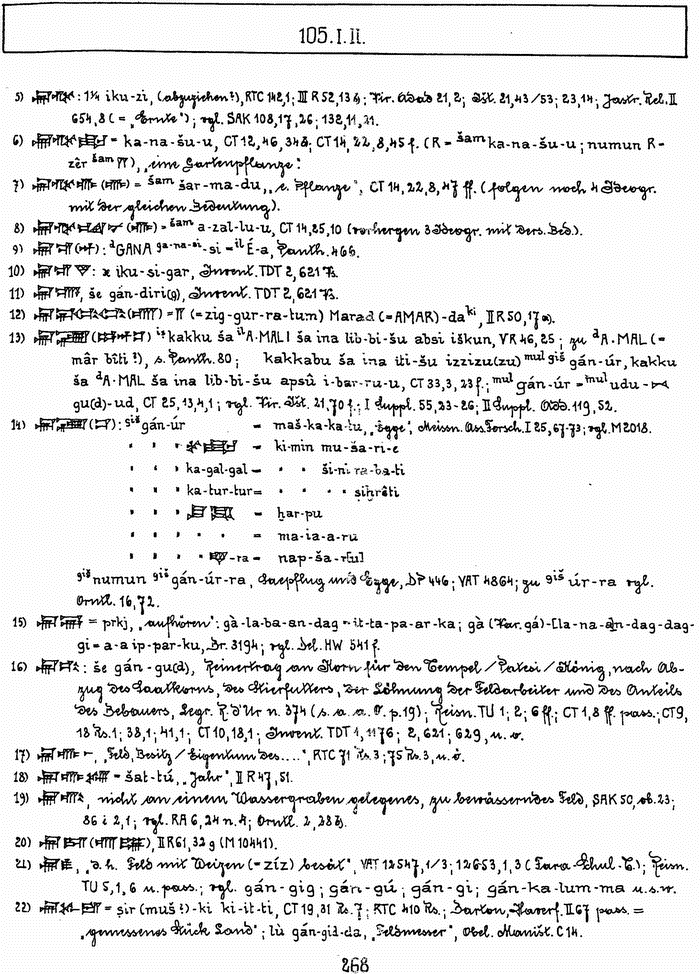 105.I.II.
5) : 1¼ iku-zi, (abzuziehen?), RTC 142,1; III R 52,13 b; Vir. Adad 21,2; Išt. 21,43/53; 23,14; Jastr. Rel. II
654,8 (= „Ernte"); vgl. SAK 108,17,26; 132,11,31.
6) = ka-na-šu-u, CT 12,46,34b; CT 14,22,8,45 f. (R = šam ka-na-šu-u; numun R =
zêr šam ), „eine Gartenpflanze".
7) ( ) = šam šar-ma-du, „e. Pflanze", CT 14,22,8,47 ff. (folgen noch 4 Ideogr.
mit der gleichen Bedeutung).
8) ( ) = šam a-zal-lu-u, CT 14,25,10 (vorhergen 3 Ideogr. mit ders. Bed.).
9) ( ) : dGANA ga-na-si-si = il É-a, Panth. 466.
10) : x iku-si-gar, Invent. TDT 2,621 Rs.
11) , še gán-diri(g), Invent. TDT 2,621 Rs.
12) ( ) = (= zig-gur-ra-tum) Marad (=AMAR)-da ki, II R 50,17a).
13) ( ) iṣ kakku ša il A.MAL I ša ina lib-bi-šu absi iškun, VR 46,25; zu dA.MAL (=
mâr bîti?), s. Panth. 80; kakkabu ša ina iti-šu izzizu(zu) mul giš gán-úr, kakku
ša dA.MAL ša ina lib-bi-šu apsû i-bar-ru-u, CT 33,3,23 f.; mul gán-úr = mul udu-
gu(d)-ud, CT 25,13,4,1; vgl. Vir. Išt. 21,70 f.; I Suppl. 55,23-26; II Suppl. Add. 119,52.
14) ( ) : giš gán-úr = maš-ka-ka-tu, „Egge", Meissn. Ass. Forsch. I 25,67-73; vgl. M 2018.
" " " = ki-min mu-ša-ri-e
" " " ka-gal-gal = " " ši-ni ra-ba-ti
" " " ka-tur-tur = " " " ṣiḫrêti
" " " = ḫar-pu
" " " " " = ma-ia-a-ru
" " " " -ra = nap-ša-r[u]
giš numun giš gán-úr-ra, Saepflug und Egge, DP 446; VAT 4864; zu giš úr-ra vgl.
Orntl. 16,72.
15) = prkj, „aufhören": gà-la-ba-an-dag = it-ta-pa-ar-ka; gà (Var. gá)-[la-na-an-dag-dag-
gi = a-a ip-par-ku, Br. 3194; vgl. Del. HW 541 f.
16) : še gán-gu(d), Reinertrag an Korn für den Tempel / Patesi / König, nach Ab-
zug des Saatkorns, des Stierfutters, der Löhnung der Feldarbeiter und des Anteils
des Bebauers, Legr. R. d'Ur n. 374 (s. a. a. O. p. 19); Reisn. TU 1; 2; 6 ff.; CT 1,8 ff. pass.; CT 9,
18 Rs. 1; 38,1; 41,1; CT 10,18,1; Invent. TDT 1,1176; 2,621; 629, u. o.
17) , „Feld, Besitz / Eigentum des....", RTC 71 Rs. 3; 75 Rs. 3, u. ö.
18) = šat-tú, „Jahr", II R 47,51.
19) , nicht an einem Wassergraben gelegenes, zu bewässerndes Feld, SAK 50, ob. 23;
86 i 2,1; vgl. RA 6,24 n. 4; Orntl. 2,28 b.
20) ( ), II R 61,32 g (M 10441).
21) , „d. h. Feld mit Weizen (= zíz) besät", VAT 12547,1/3; 12653,1,3 (Fara-Schul-T.); Reisn.
TU 5,1,6 u. pass.; vgl. gán-gig; gán-gú; gán-gi; gán-ka-lum-ma u.s.w.
22) = ṣir (muš?)-ki ki-it-ti, CT 19,31 Rs. 7; RTC 410 Rs.; Barton, Haverf. II 67 pass. =
„gemessenes Stück Land"; lù gán-gíd-da, „Feldmesser", Obel. Maništ. C 14.
268